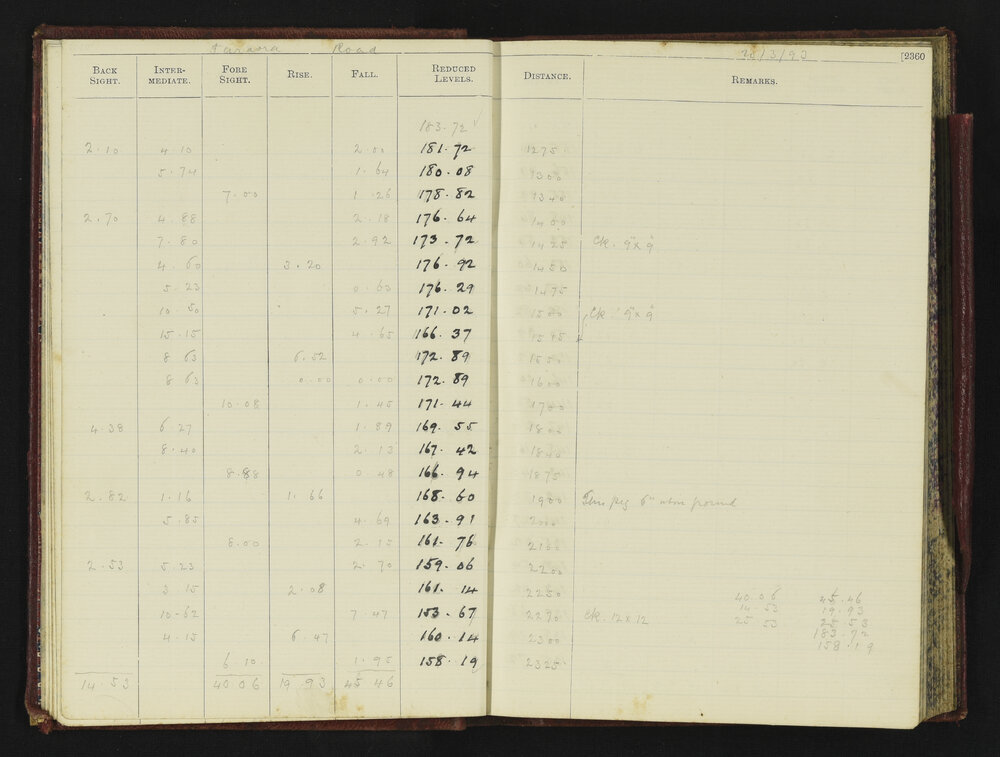 Tarana Road 30/3/93 [2360
BACK SIGHT. INTER-MEDIATE. FORE SIGHT. RISE. FALL. REDUCED LEVELS. DISTANCE. REMARKS.
183.72
2.10 4.10 2.00 181.72 1275
5.74 1.64 180.08 1300
7.00 1.26 178.82 1340
2.70 4.88 2.18 176.64 1400
7.80 2.92 173.72 1425 Ck. 9"x9"
4.60 3.20 176.92 1450
5.23 0.63 176.29 1475
10.50 5.27 171.02 1500 Ck. 9"x9"
15.15 4.65 166.37
8.63 6.52 172.89 1550
8.63 0.00 0.00 172.89 1600
10.08 1.45 171.44 1700
4.38 6.27 1.89 169.55 1800
8.40 2.13 167.42 1840
8.88 0.48 166.94 1875
2.82 1.16 1.66 168.60 1900 This peg 6" above ground
5.85 4.69 163.91 2000
8.00 2.15 161.76 2100
2.53 5.23 2.70 159.06 2200
3.15 2.08 161.14 2250
10.62 7.47 153.67 2290 Ck. 12x12
4.15 6.47 160.14 2300
6.10 1.95 158.19 2325
14.53 40.06 19.93 45.46
40.06 45.46
14.53 19.93
25.53 25.53
183.72
158.19